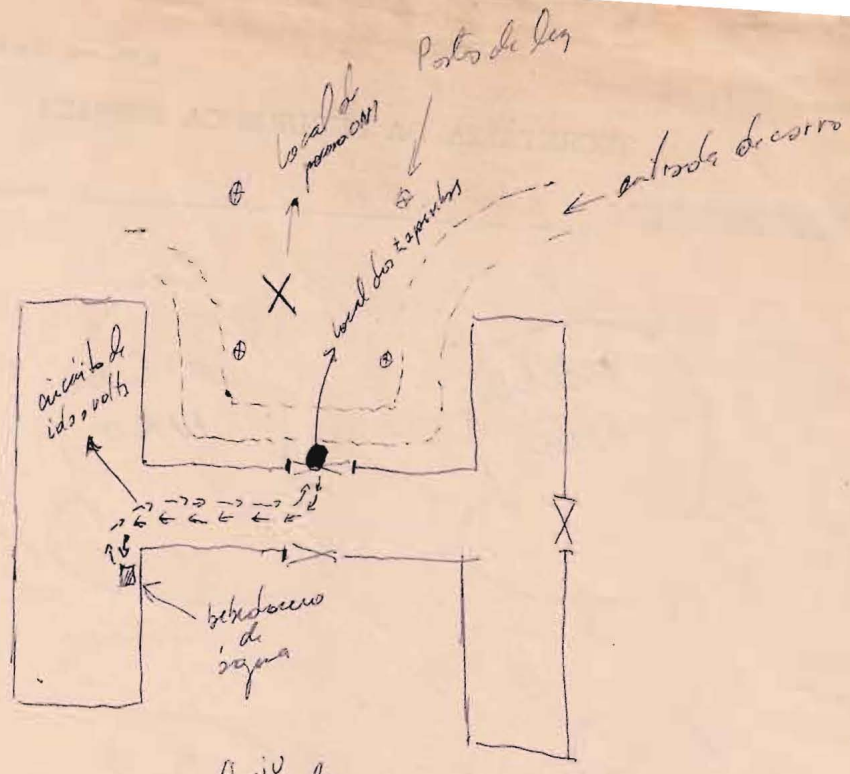 Postes de luz
Local de
entrada de carro
local dos
circuito de
ida e volta
bebedouro
de
água